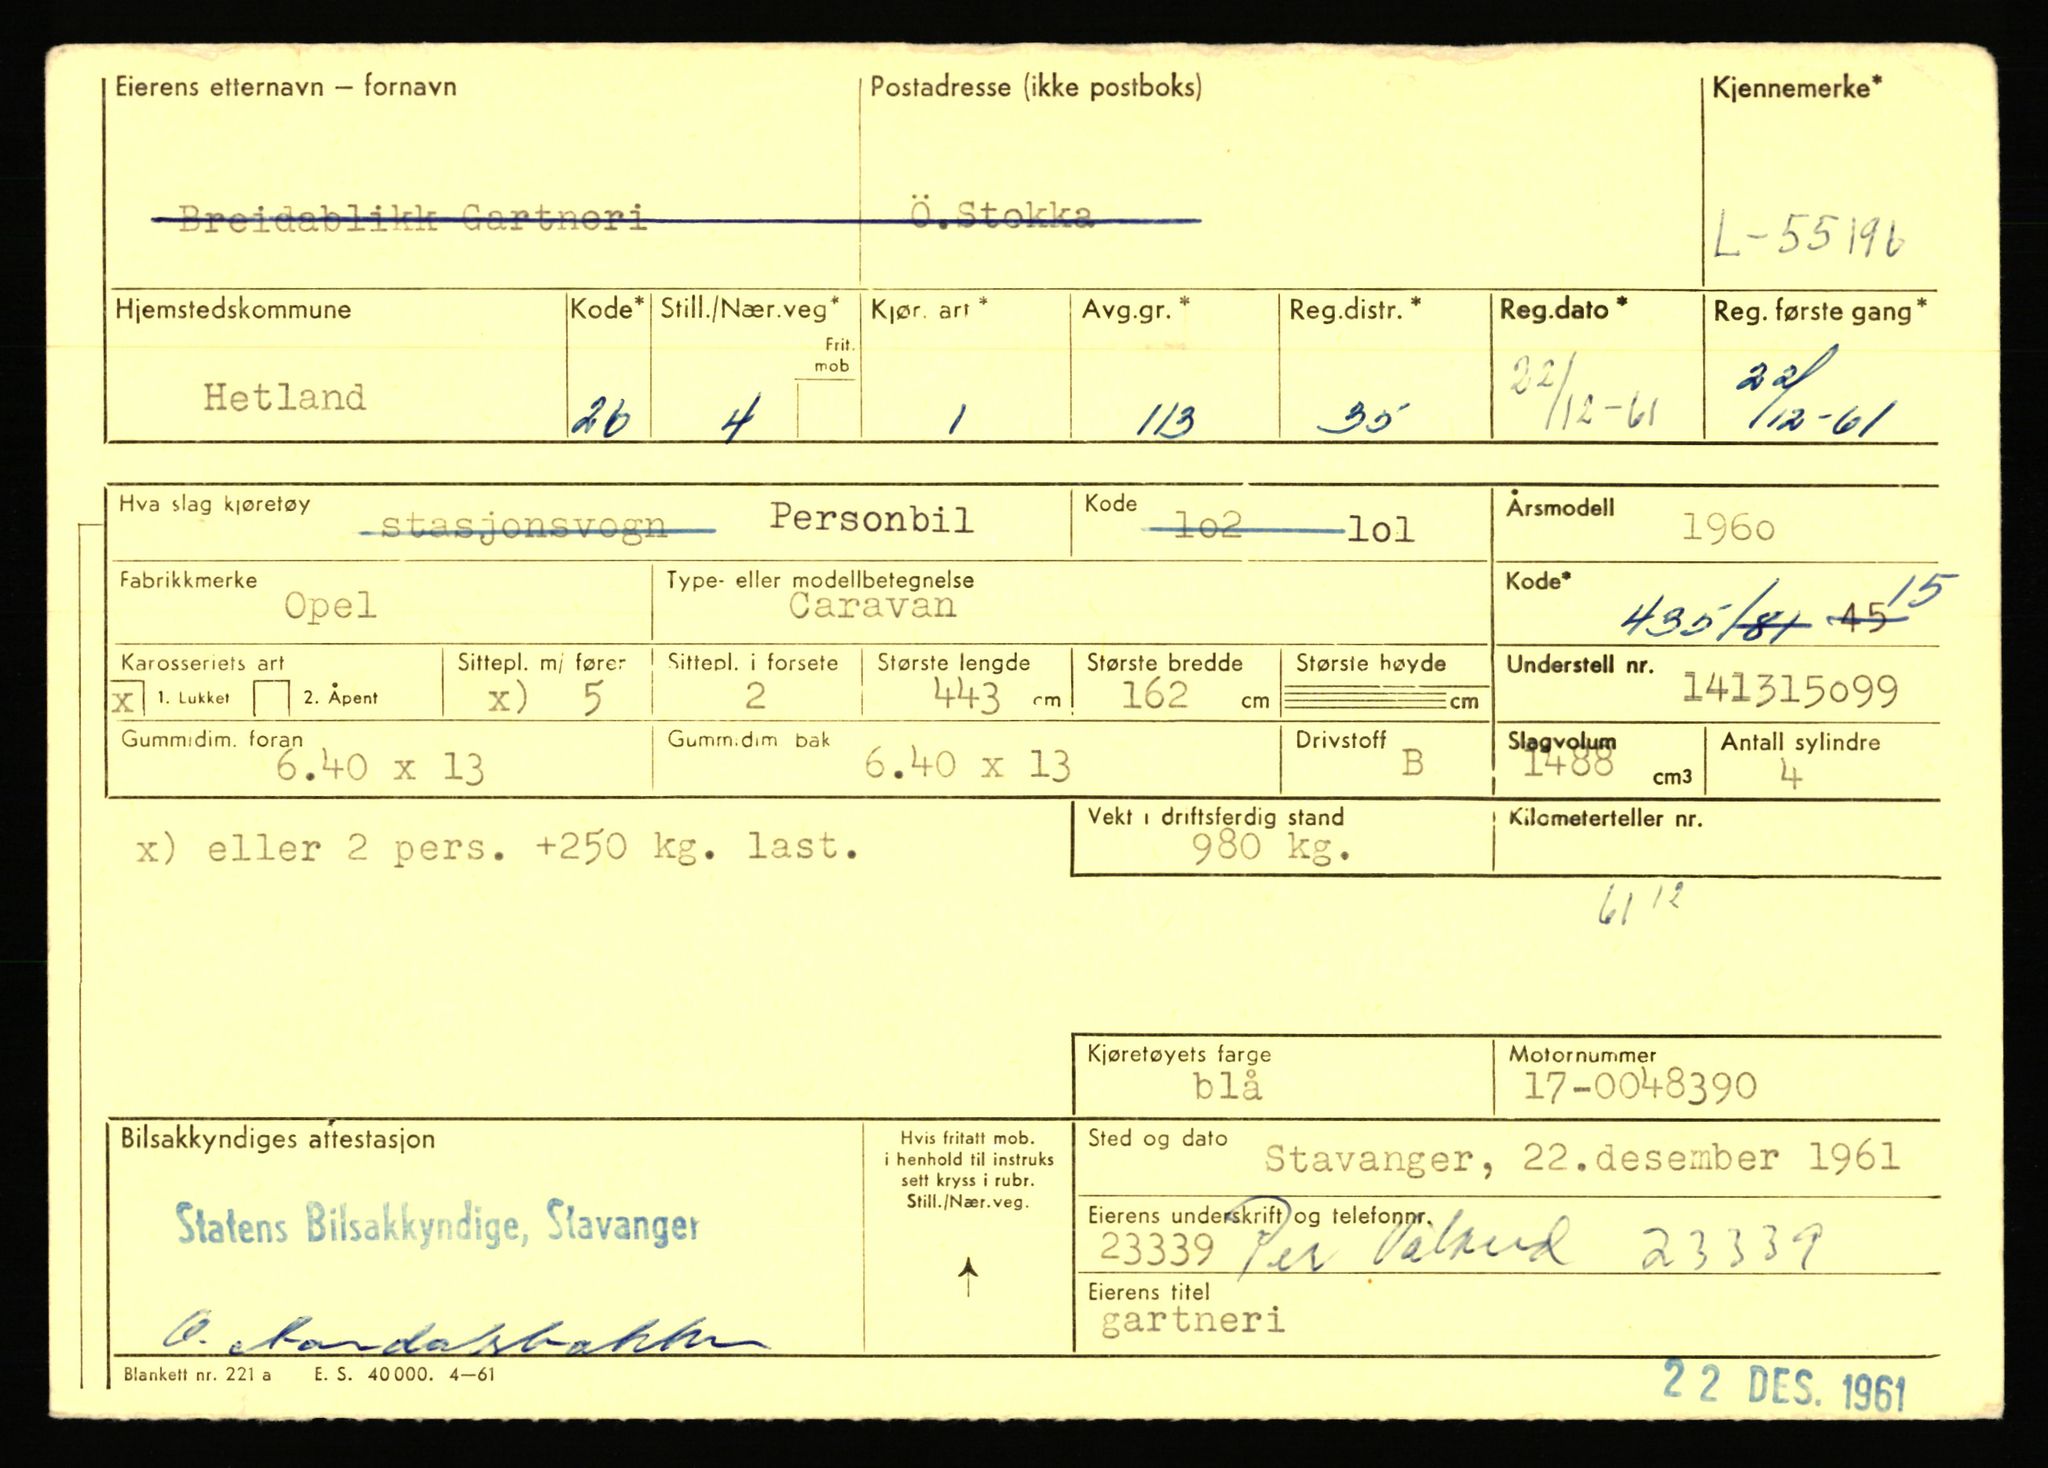 Eierens etternavn – fornavn Postadresse (ikke postboks) Kjennemerke*
Breidablikk Gartneri Ö.Stokka L-55196
Hjemstedskommune Kode* Still./Nær.veg* Kjør. art* Avg.gr.* Reg.distr.* Reg.dato* Reg. første gang*
Frit. mob
Hetland 26 4 1 113 35 22/12-61 22/12-61
Hva slag kjøretøy Kode Årsmodell
stasjonsvogn Personbil lo2 lol 196o
Fabrikkmerke Type- eller modellbetegnelse Kode*
Opel Caravan 435/81 45 15
Karosseriets art Sittepl. m/ fører Sittepl. i forsete Største lengde Største bredde Største høyde Understell nr.
x 1. Lukket 2. Åpent x) 5 2 443 cm 162 cm cm 141315o99
Gummidim. foran Gumm.dim bak Drivstoff Slagvolum Antall sylindre
6.40 x 13 6.40 x 13 B 1488 cm3 4
Vekt i driftsferdig stand Kilometerteller nr.
x) eller 2 pers. +250 kg. last. 980 kg.
61 12
Kjøretøyets farge Motornummer
blå 17-0048390
Bilsakkyndiges attestasjon
Hvis fritatt mob.
i henhold til instruks
sett kryss i rubr.
Still./Nær.veg.
Sted og dato
Stavanger, 22.desember 1961
Statens Bilsakkyndige, Stavanger
Eierens underskrift og telefonnr.
23339 Per 23339
Eierens titel
gartneri
O.
Blankett nr. 221 a E. S. 40 000. 4–61
22 DES. 1961